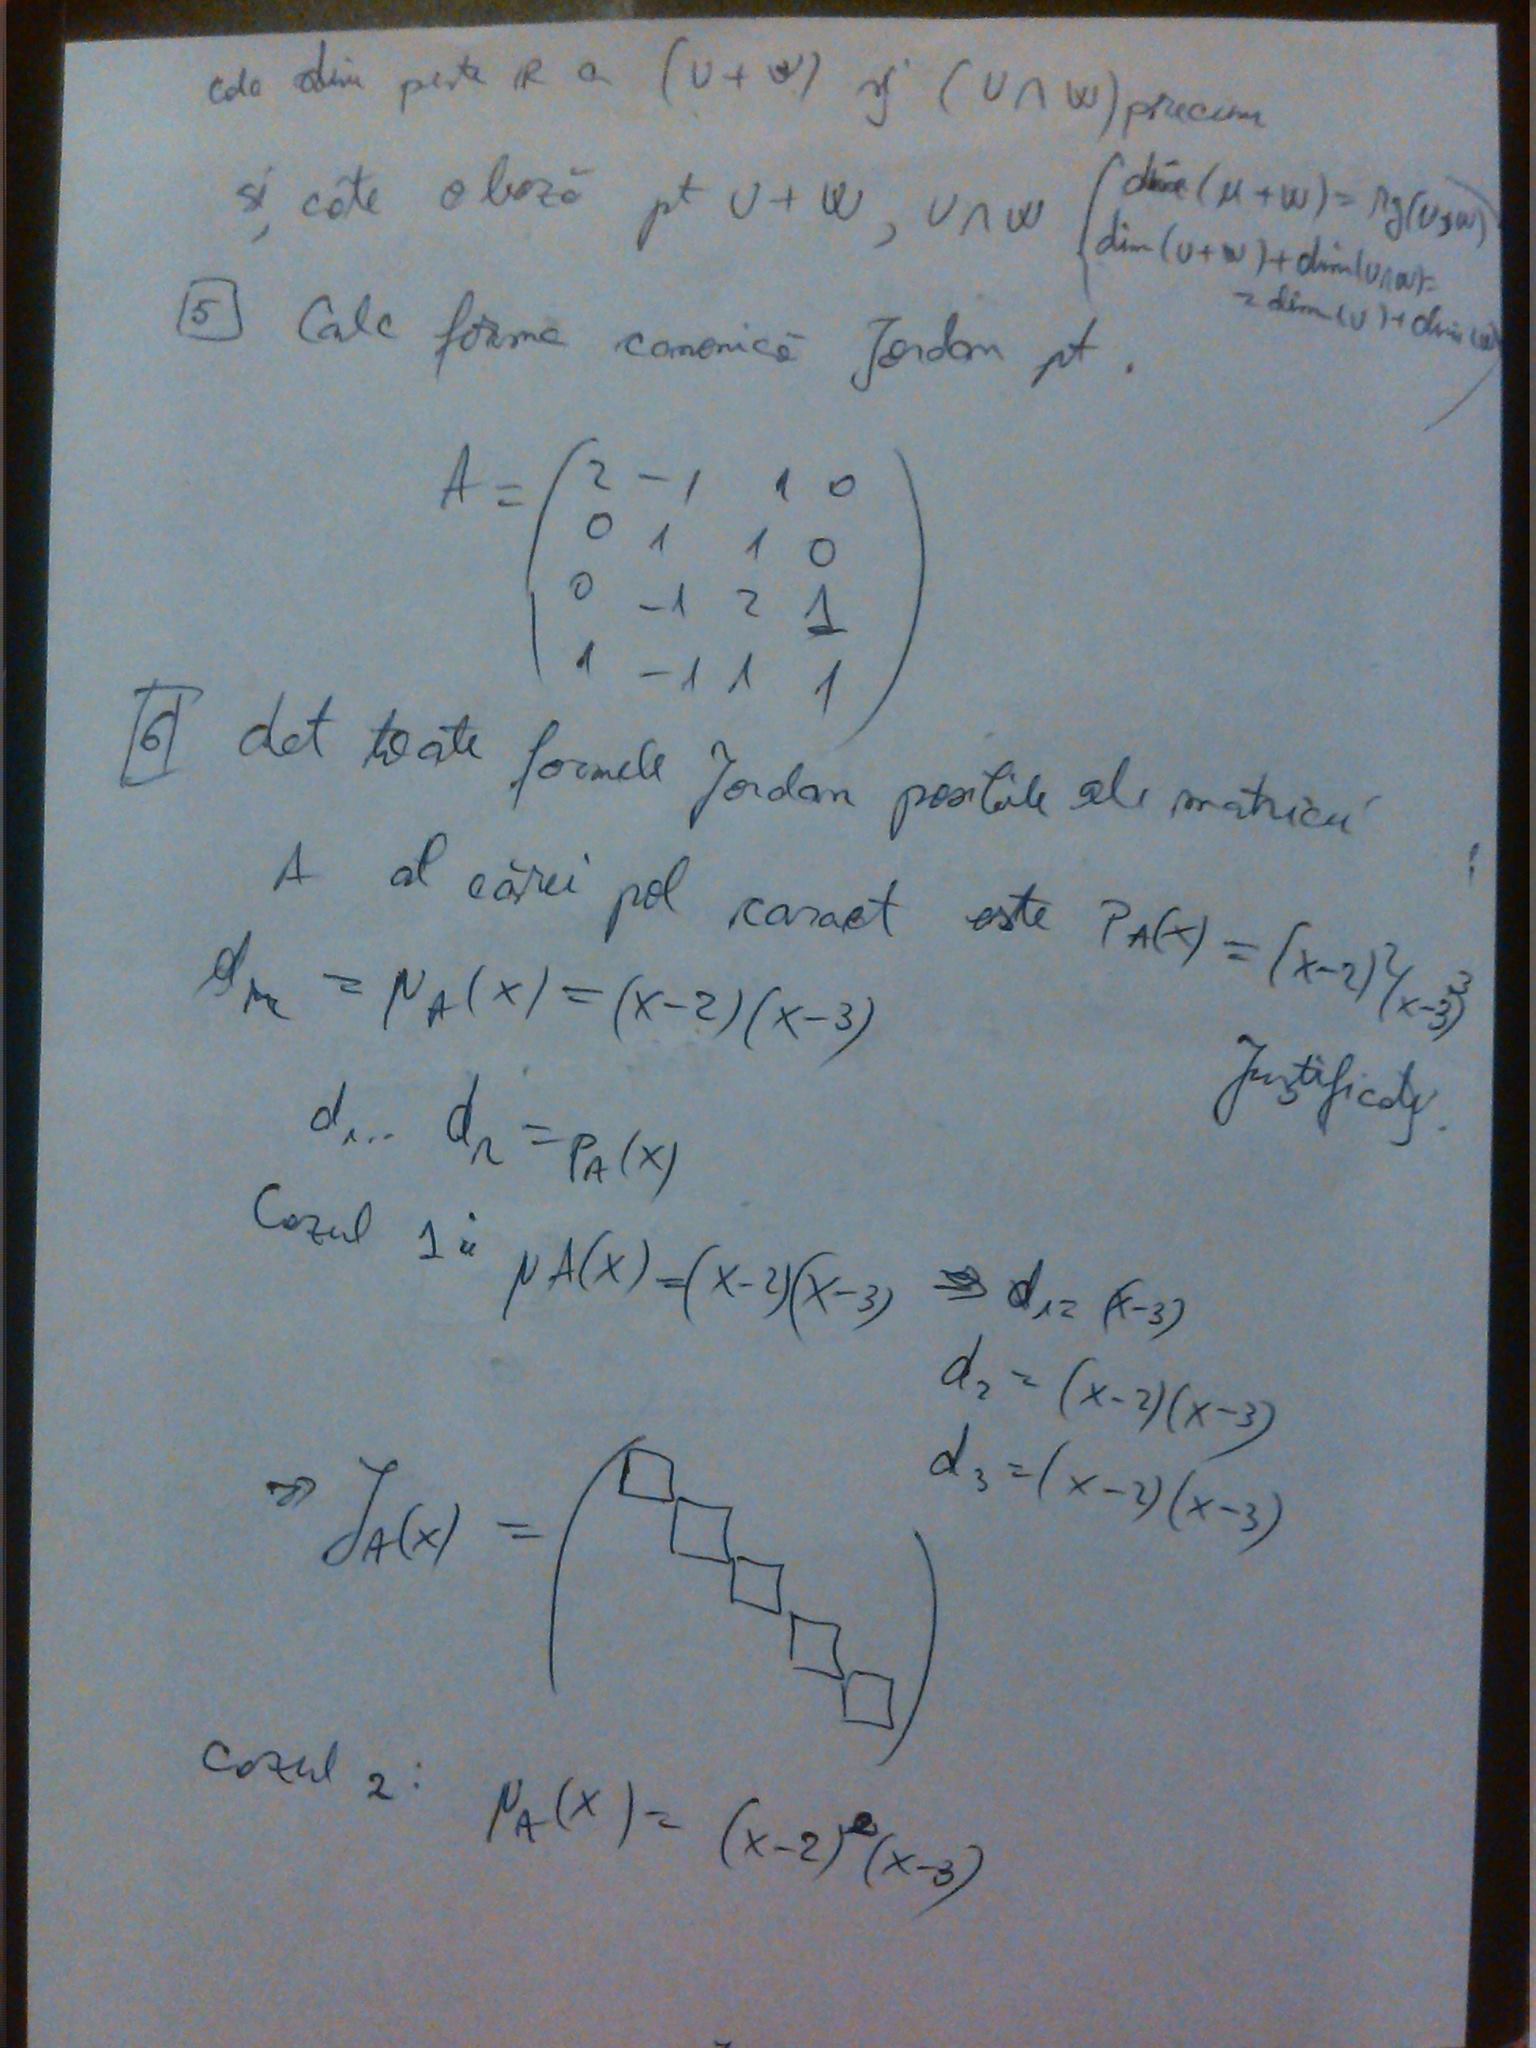 calc dim peste R a (U+W) și (U∩W) precum
și câte o bază pt U+W, U∩W (dim(U+W)=rg(U,W)
dim(U+W)+dim(U∩W)=
=dim(U)+dim(W))
5 Calc forma canonică Jordan pt.
A = ( 2 -1 1 0
0 1 1 0
0 -1 2 1
1 -1 1 1 )
6 det toate formele Jordan posibile ale matricii
A al cărei pol caract este P_A(x) = (x-2)²(x-3)³
Justificați.
d_n = μ_A(x) = (x-2)(x-3)
d₁... d_n = P_A(x)
Cazul 1: μA(x)=(x-2)(x-3) ⇒ d₁=(x-3)
d₂ = (x-2)(x-3)
d₃ = (x-2)(x-3)
⇒ J_A(x) = ( )
Cazul 2: μ_A(x) = (x-2)²(x-3)